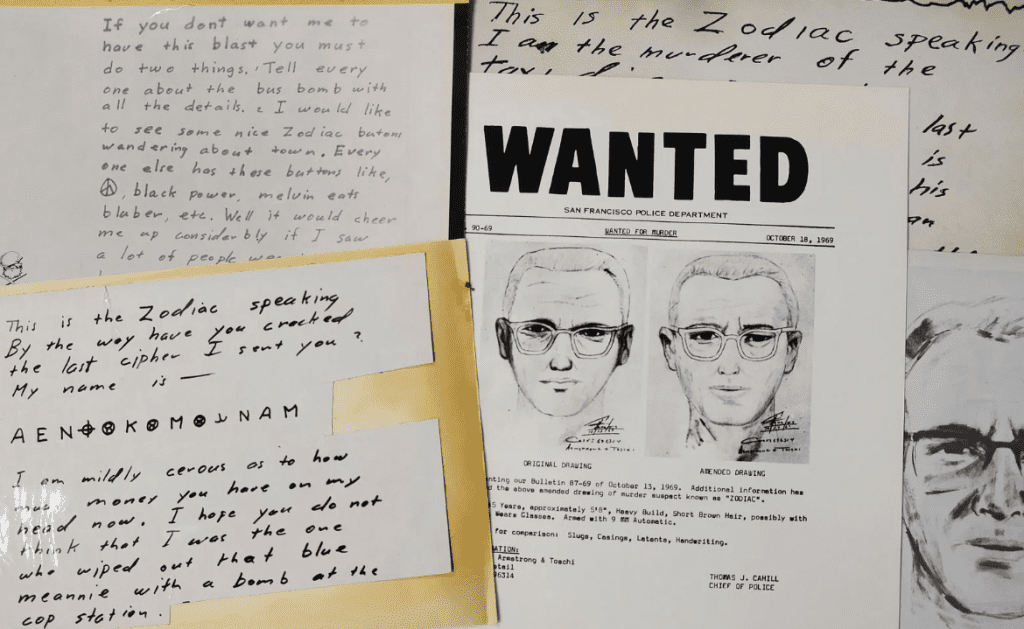 If you dont want me to
have this blast you must
do two things. 1 Tell every
one about the bus bomb with
all the details. 2 I would like
to see some nice Zodiac butons
wandering about town. Every
one else has these buttons like,
☮, black power, melvin eats
bluber, etc. Well it would cheer
me up considerbly if I saw
a lot of people
This is the Zodiac speaking
I am the murderer of the
last
is
his
an
This is the Zodiac speaking
By the way have you cracked
the last cipher I sent you?
My name is —
A E N ⌖ ⊗ K ⊗ M ⊗ N A M
I am mildly cerous as to how
money you have on my
head now. I hope you do not
think that I was the one
who wiped out that blue
meannie with a bomb at the
cop station.
WANTED
SAN FRANCISCO POLICE DEPARTMENT
90-69 WANTED FOR MURDER OCTOBER 18, 1969
ORIGINAL DRAWING AMENDED DRAWING
our Bulletin 87-69 of October 13, 1969. Additional information has
the above amended drawing of murder suspect known as "ZODIAC".
Years, approximately 5'8", Heavy Build, Short Brown Hair, possibly with
Wears Glasses. Armed with 9 MM Automatic.
for comparison: Slugs, Casings, Latents, Handwriting.
Armstrong & Toschi
THOMAS J. CAHILL
CHIEF OF POLICE